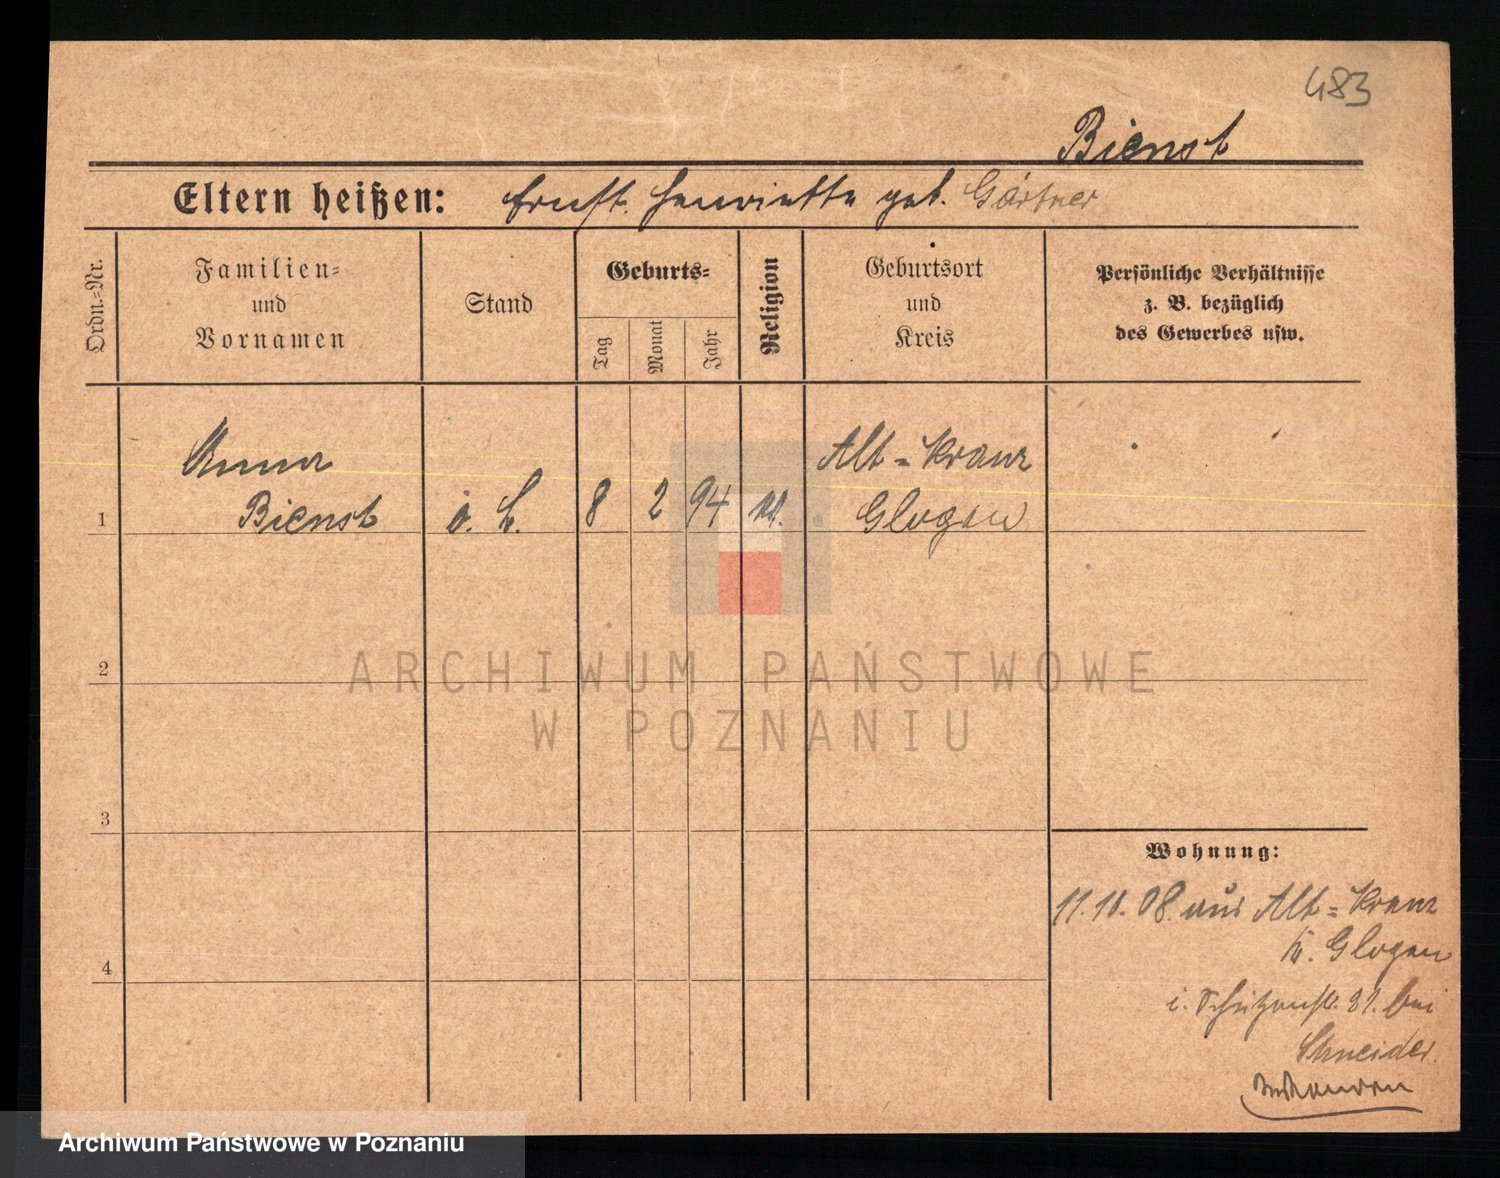 483
Bienst
Eltern heißen: Ernst. Henriette geb. Gärtner
Ordn.=Nr.
Familien=
und
Vornamen
Stand
Geburts=
Tag
Monat
Jahr
Religion
Geburtsort
und
Kreis
Persönliche Verhältnisse
z. B. bezüglich
des Gewerbes usw.
Anna
Alt=Kranz
1 Bienst o. H. 8 2 94 Glogau
2
ARCHIWUM PAŃSTWOWE
W POZNANIU
3
Wohnung:
11.10.08. aus Alt=Kranz
Kr. Glogau
i. Schützenstr. 21. bei
Schneider.
4
Archiwum Państwowe w Poznaniu